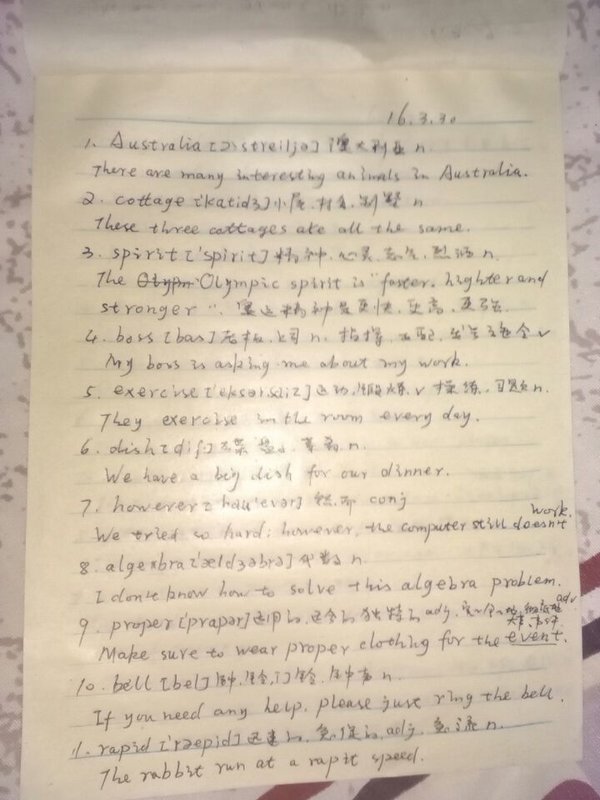 16.3.30
1. Australia [ɔ'streiljə] 澳大利亚 n.
There are many interesting animals in Australia.
2. cottage ['katidʒ] 小屋. 村舍. 别墅 n
These three cottages are all the same.
3. spirit ['spirit] 精神. 心灵. 志气. 烈酒 n.
The Olympic spirit is "faster, highter and
stronger". 奥运精神是更快. 更高. 更强.
4. boss [bas] 老板. 上司 n. 指挥. 支配. 发号施令 v
My boss is asking me about my work.
5. exercise ['eksərsaiz] 运动. 锻炼. v 操练. 习题 n.
They exercise in the room every day.
6. dish [diʃ] 菜 n.
We have a big dish for our dinner.
7. however [hau'evər] 然而 conj
We tried so hard; however, the computer still doesn't work.
8. algebra ['ældʒəbrə] 代数 n.
I don't know how to solve this algebra problem.
9. proper [prapər] 适用的. 适合的. 独特的 adj. adv
Make sure to wear proper clothing for the event.
10. bell [bel] 钟. 铃. 门铃. 钟声 n.
If you need any help, please just ring the bell.
11. rapid ['ræpid] 迅速的. 急促的. adj. 急流 n.
The rabbit run at a rapit speed.